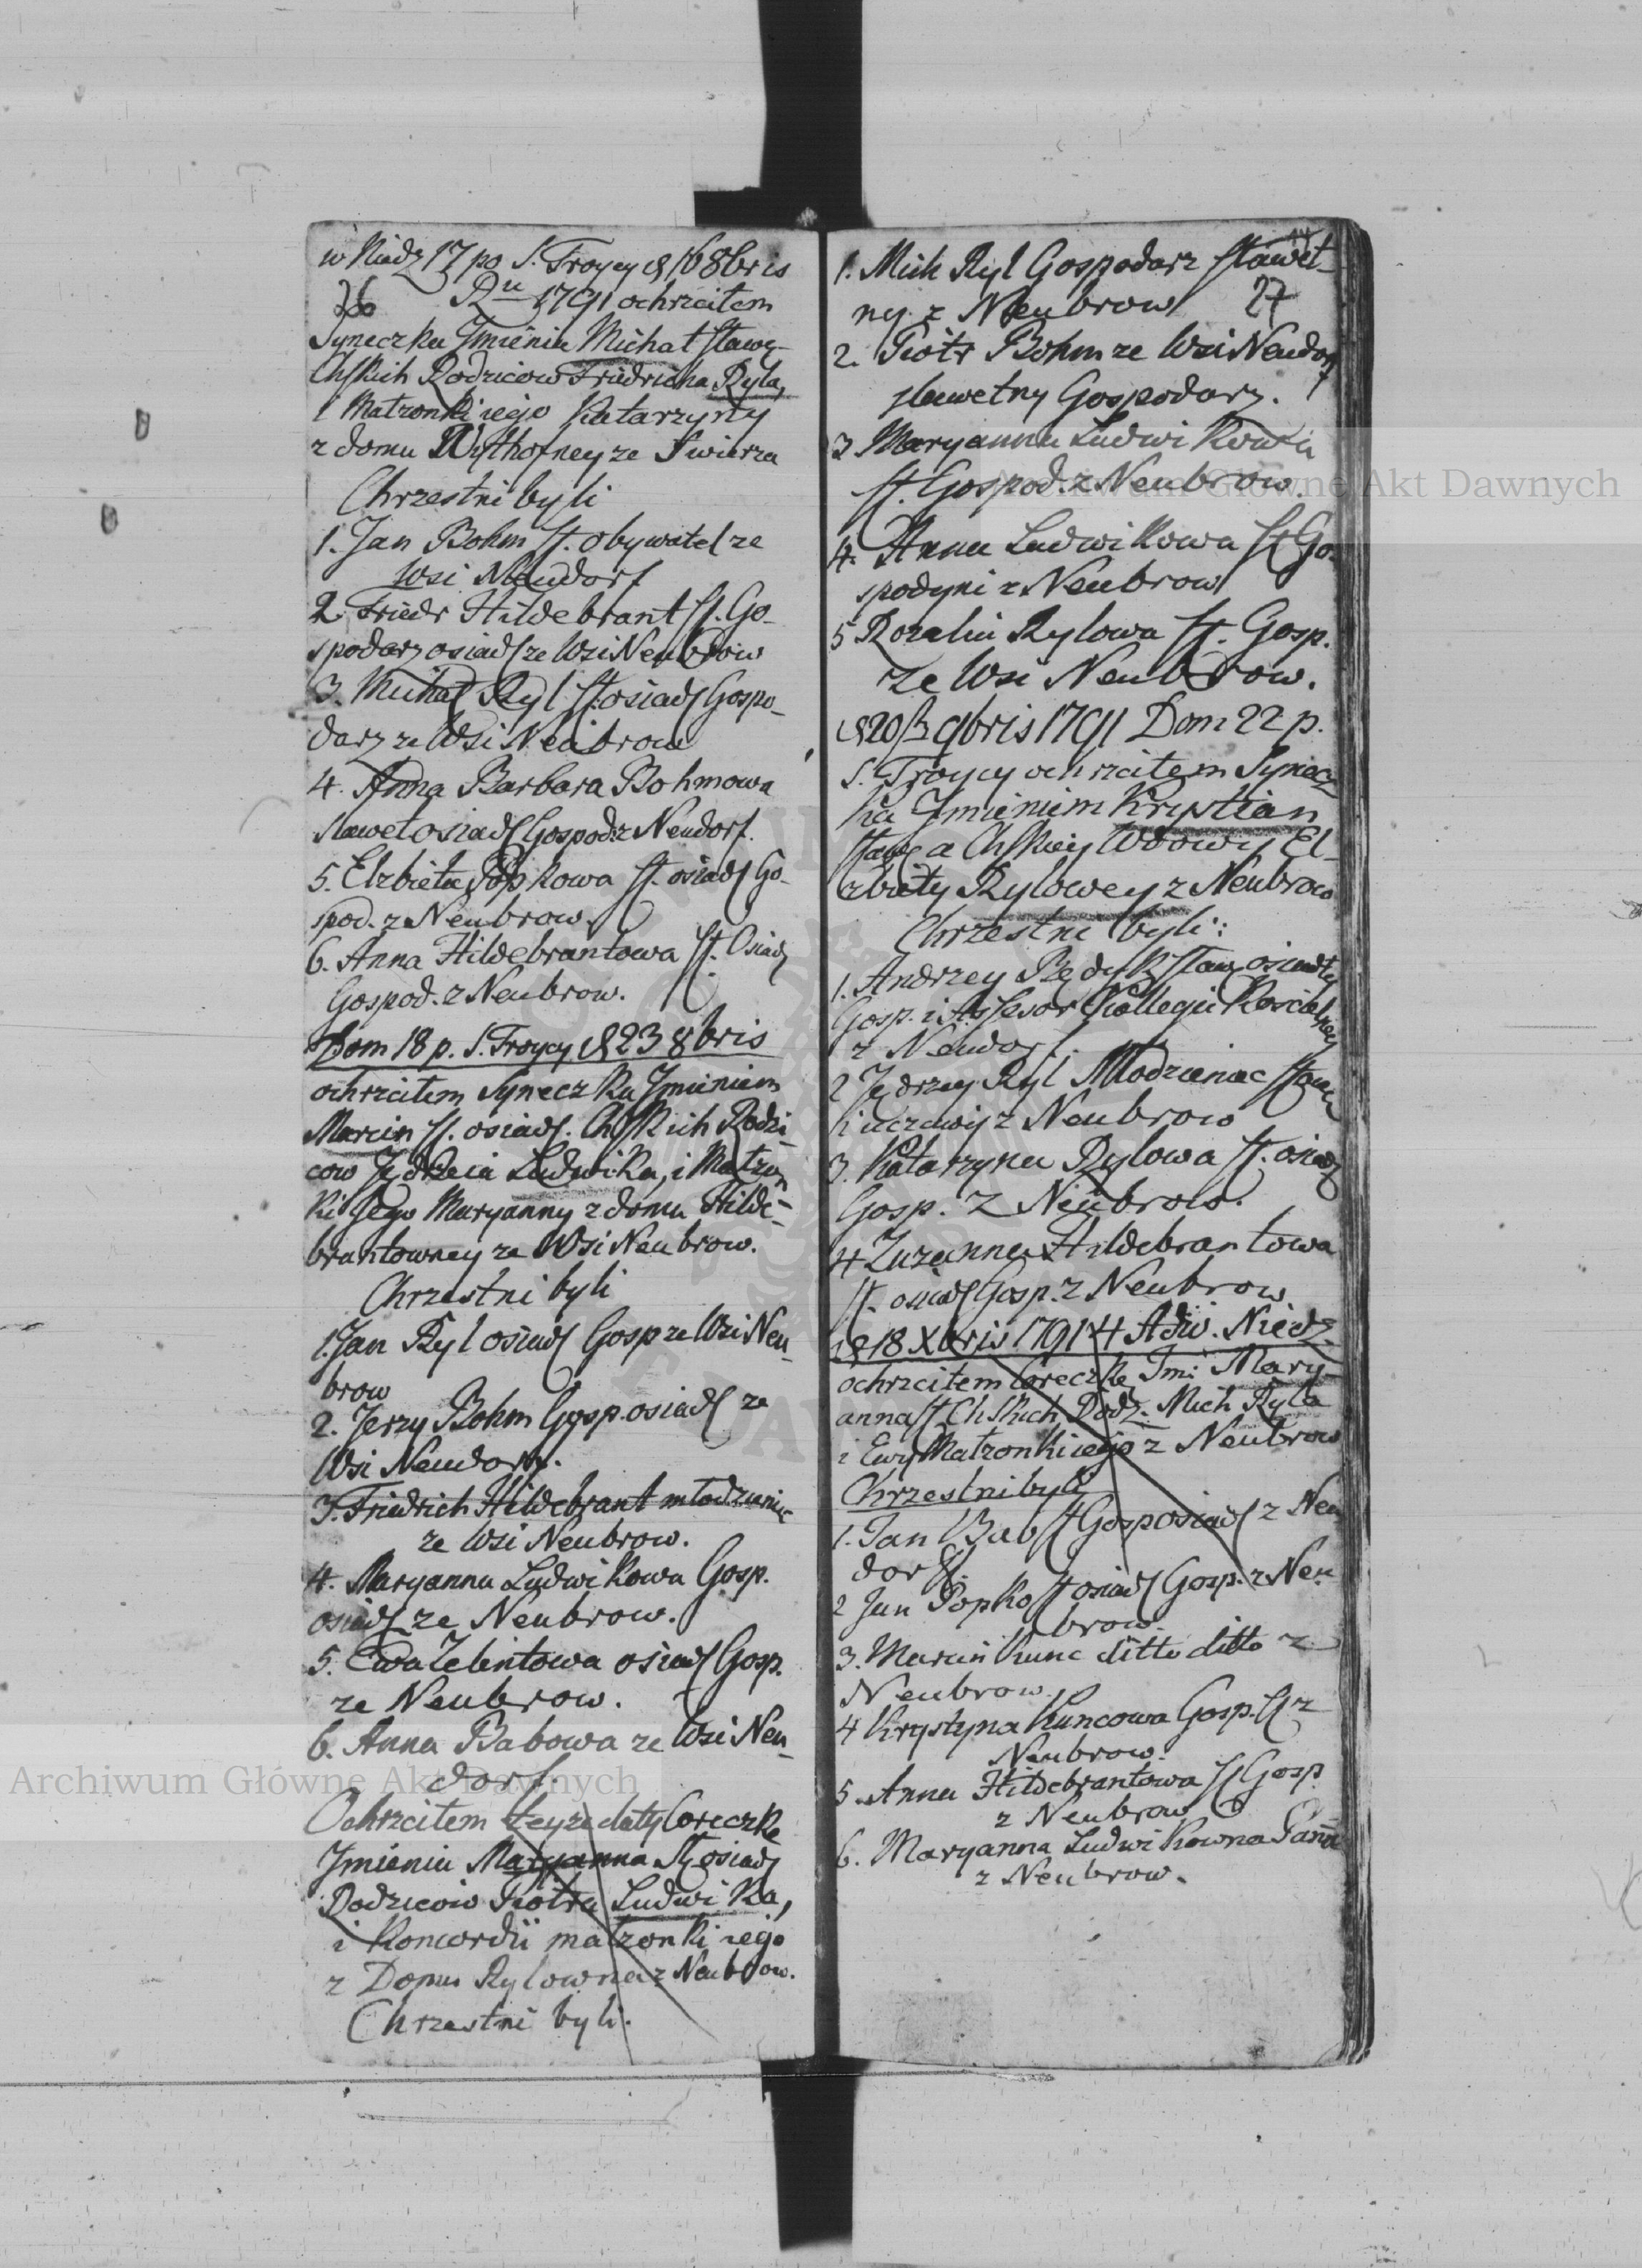 w Niedz 17 po S. Troycy d 16 8bris
26 Ru 1791 ochrzciłem
Syneczka Jmieniu Michał Sławę-
Chskich Rodzicow Friedricha Ryla,
i Małzonki iego Katarzyny
z domu Wythofney ze Swierza
Chrzestni byli
1. Jan Bohm St. obywatel ze
Wsi Neudorf
2. Friedr Hildebrant St. Go-
spodarz osiadł ze Wsi Neubrow
3. Michał Ryl St. osiadł Gospo-
darz ze Wsi Neubrow
4. Anna Barbara Bohmowa
sławet osiadł Gospod: z Neudorf.
5. Elzbieta Popkowa St. osiadł Go-
spod. z Neubrow.
6. Anna Hildebrantowa St. Osiadł
Gospod. z Neubrow.
Dom 18 p. S. Troycy d 23 8bris
ochrzciłem Syneczka Jmieniem
Marcin St. osiadł. Chskich Rodzi-
cow Jędrzeia Ludwika, i Małzon
ki Jego Maryanny z domu Hilde-
brantowney ze Wsi Neubrow.
Chrzestni byli
1. Jan Ryl osiadł Gosp ze Wsi Neu-
brow
2. Jerzy Bohm Gosp. osiadł ze
Wsi Neudorf.
3. Friedrich Hildebrant młodzieniec
ze Wsi Neubrow.
4. Maryanna Ludwikowa Gosp.
osiadł ze Neubrow.
5. Ewa Zelentowa osiadł Gosp.
ze Neubrow.
6. Anna Babowa ze Wsi Neu-
dorf.
Ochrzciłem teyze daty Coreczkę
Jmieniu Maryanna St osiadł
Rodzicow Piotra Ludwika,
i Koncordii małzonki iego
z Domu Rylowna z Neubrow.
Chrzestni byli.
1. Mich Ryl Gospodarz sławet-
ny z Neubrow 27
2. Piotr Bohm ze Wsi Neudorf
sławetny Gospodarz.
3 Maryanna Ludwikowa
St. Gospod. z Neubrow.
4. Anna Ludwikowa St Go-
spodyni z Neubrow
5 Rozalia Rylowa St. Gosp.
ze Wsi Neubrow.
d 20 9bris 1791 Dom 22 p.
S. Troycy ochrzciłem Synecz
ka Jmieniem Krystian
Sław a Chskiey Wdowy El-
zbiety Rylowey z Neubrow
Chrzestni byli:
1. Andrzey Rędyk Staw osiadły
Gosp. i Assesor Kollegii Koscielney
z Neudorf.
2 Jędrzey Ryl Młodzieniec Sław
i uczciwy z Neubrow
3. Katarzyna Rylowa St. osiadł
Gosp. z Neubrow.
4 Zuzanna Hildebrantowa
St. osiadł Gosp. z Neubrow
d 18 Xbris 1791 4 Adw. Niedz
ochrzciłem Coreczkę Jmi Mary-
anna St Chskich Rodz. Mich Ryla
i Ewy Małzonki iego z Neubrow
Chrzestni byli
1. Jan Bab St Gosp osiadł z Neu
dorff.
2 Jan Popko St osiadł Gosp. z Neu
brow.
3. Marcin Kunc ditto ditto z
Neubrow.
4 Krystyna Kuncowa Gosp. St z
Neubrow.
5. Anna Hildebrantowa St Gosp.
z Neubrow
6. Maryanna Ludwikowna Panna
z Neubrow.
Archiwum Główne Akt Dawnych
Archiwum Główne Akt Dawnych